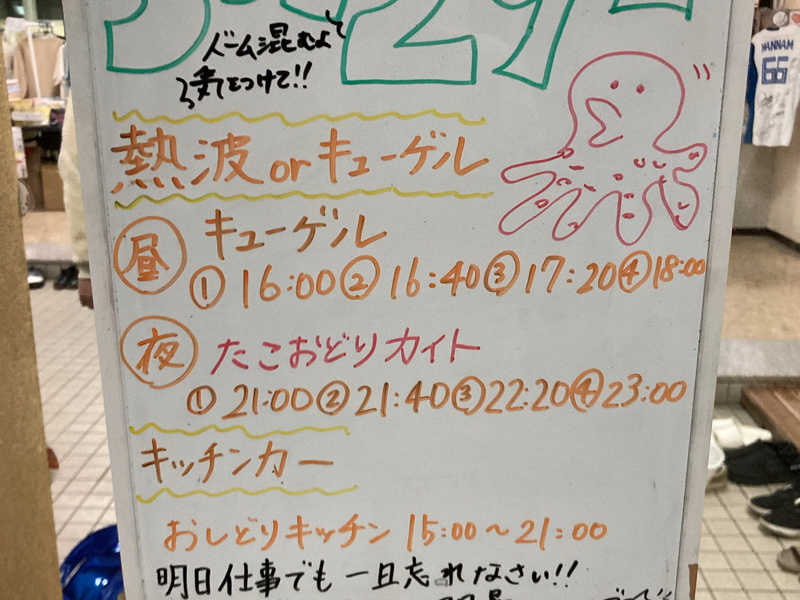 29
ドーム混むよて
気をつけて!!
熱波orキューゲル
昼 キューゲル
①16:00②16:40③17:20④18:00
夜 たこおどりカイト
①21:00②21:40③22:20④23:00
キッチンカー
おしどりキッチン 15:00〜21:00
明日仕事でも一旦忘れなさい!!
HANNAM
66